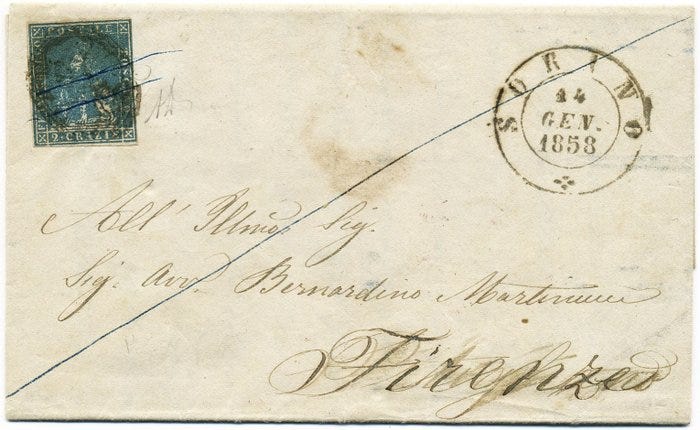 POSTALE
2 CRAZIE
SORANO
14
GEN.
1858
All' Illmo Sig.
Sig. Avv. Bernardino
Firenze